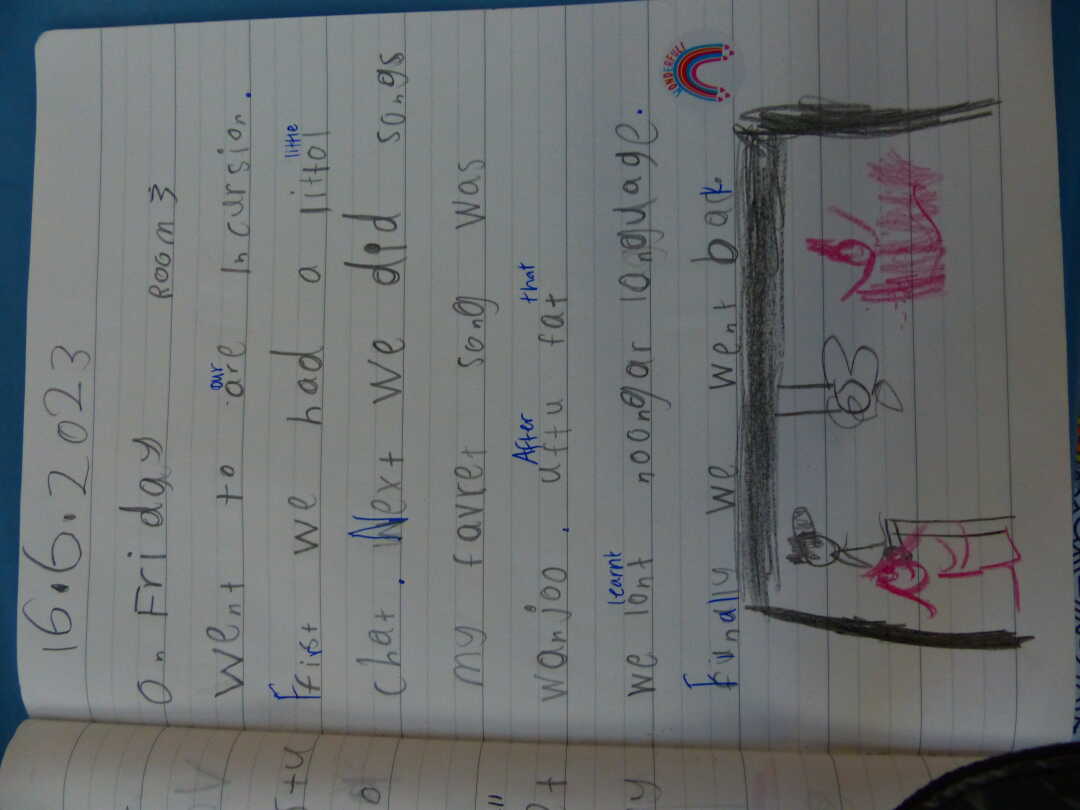 16.6.2023
On Friday Room 3
our
went to are Incursion.
little
first we had a littol
chat. Next we did songs
my favret song was
After that
wanjoo. uftu fat
learnt
we lont noongar language.
finally we went back
WONDERFUL!